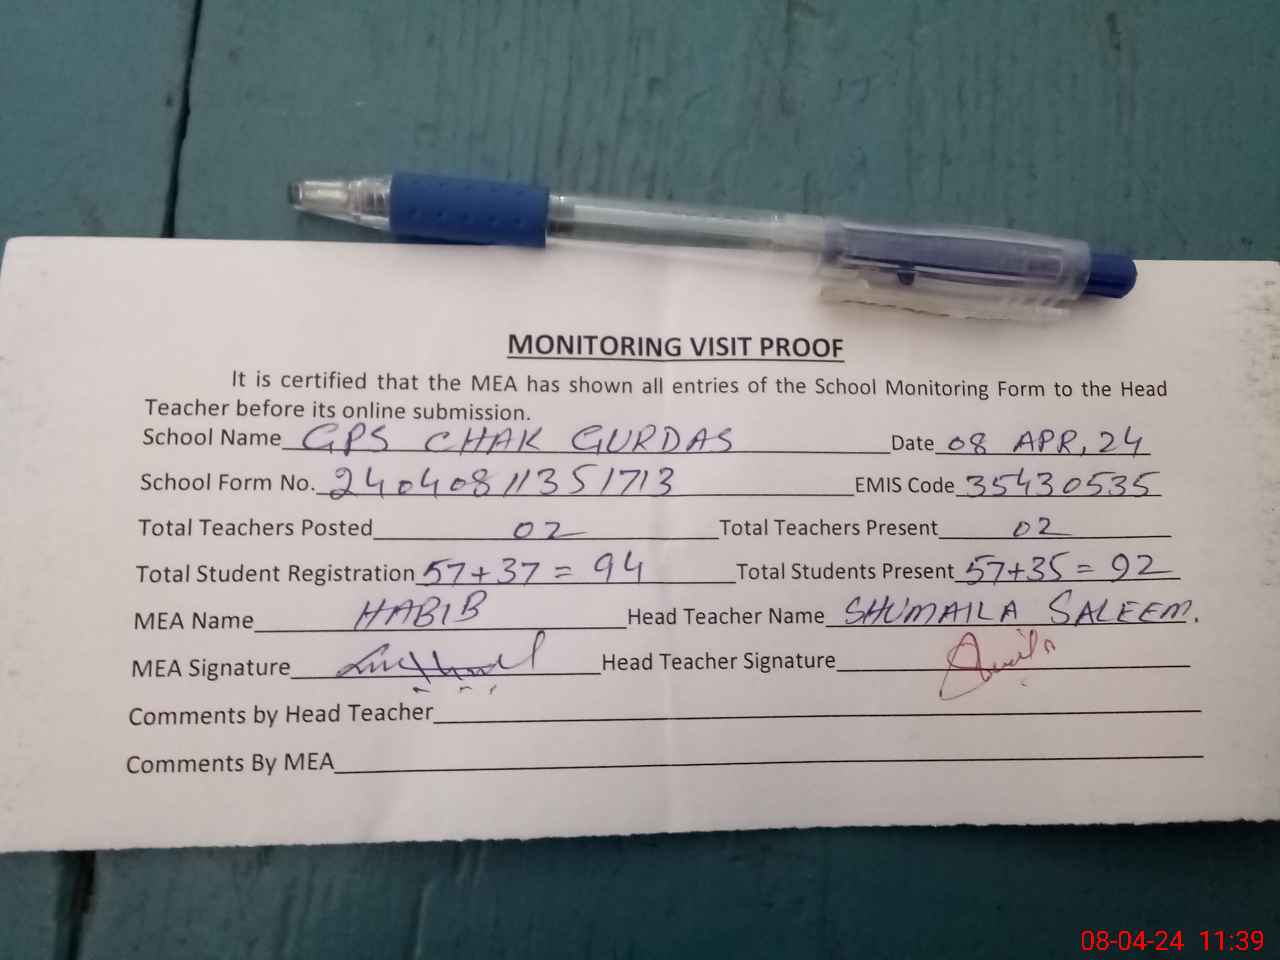 MONITORING VISIT PROOF
It is certified that the MEA has shown all entries of the School Monitoring Form to the Head
Teacher before its online submission.
School Name GPS CHAK GURDAS Date 08 APR, 24
School Form No. 24040811351713 EMIS Code 35430535
Total Teachers Posted 02 Total Teachers Present 02
Total Student Registration 57+37 = 94 Total Students Present 57+35 = 92
MEA Name HABIB Head Teacher Name SHUMAILA SALEEM.
MEA Signature Head Teacher Signature
Comments by Head Teacher
Comments By MEA
08-04-24 11:39